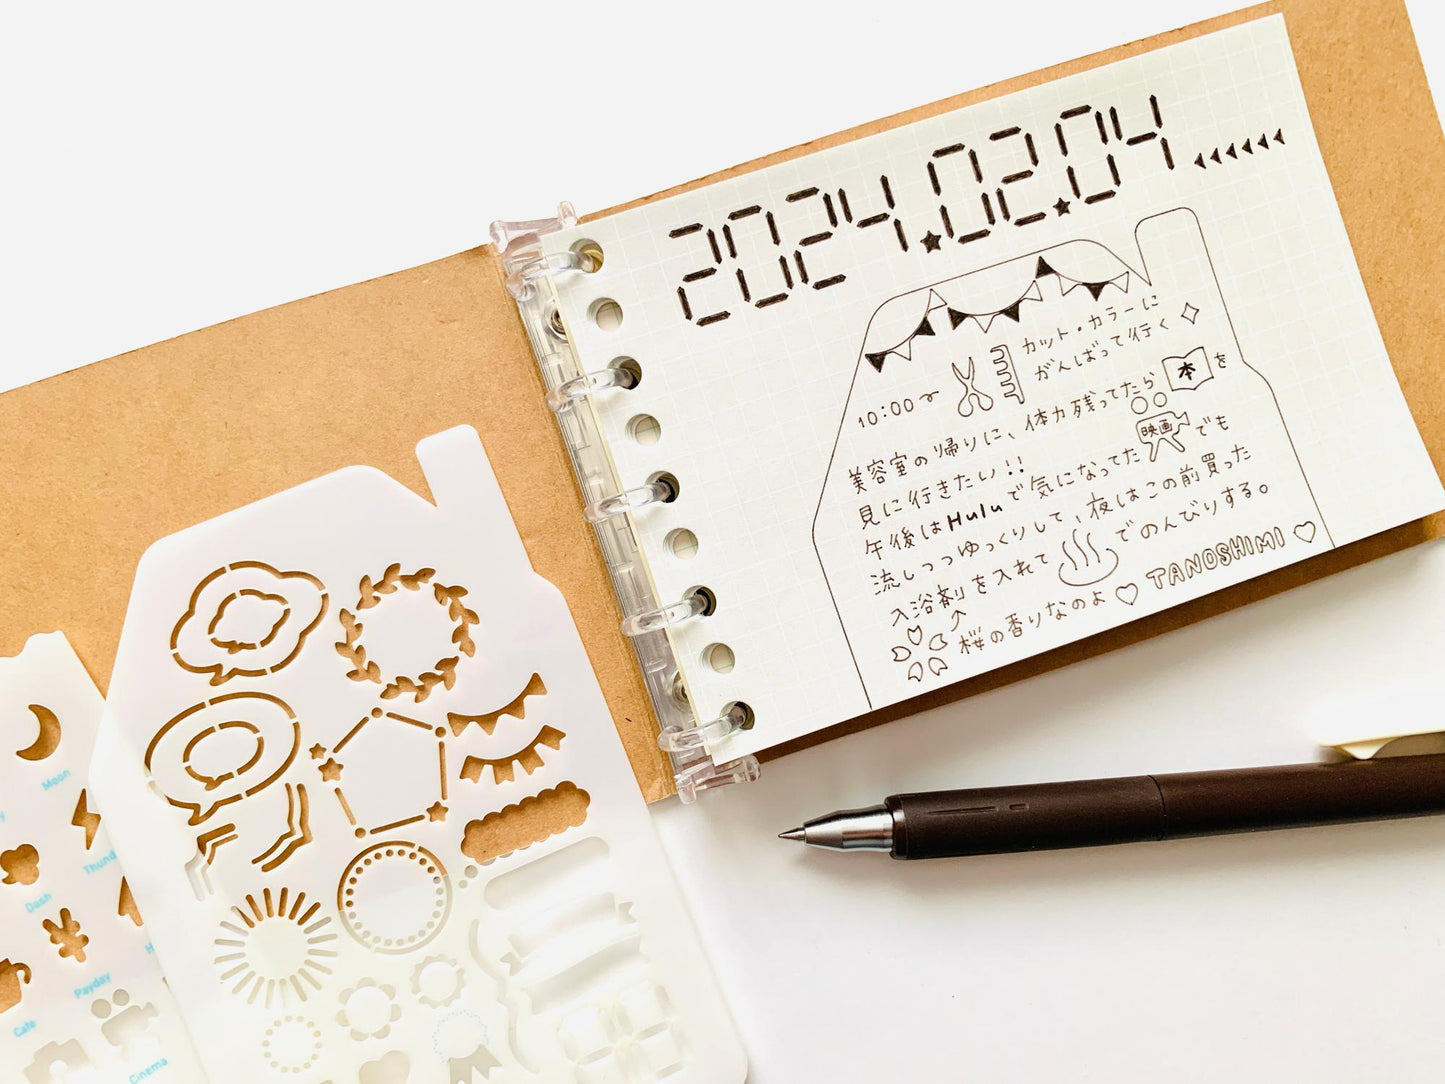 2024.02.04
カット・カラーに
がんばって行く
10:00〜
美容室の帰りに、体力残ってたら 本 を
見に行きたい!!
午後はHuluで気になってた 映画 でも
流しつつゆっくりして、夜はこの前買った
入浴剤を入れて でのんびりする。
桜の香りなのよ♡ TANOSHIMI ♡
Moon
Thund
Dash
Payday
Cafe
Cinema